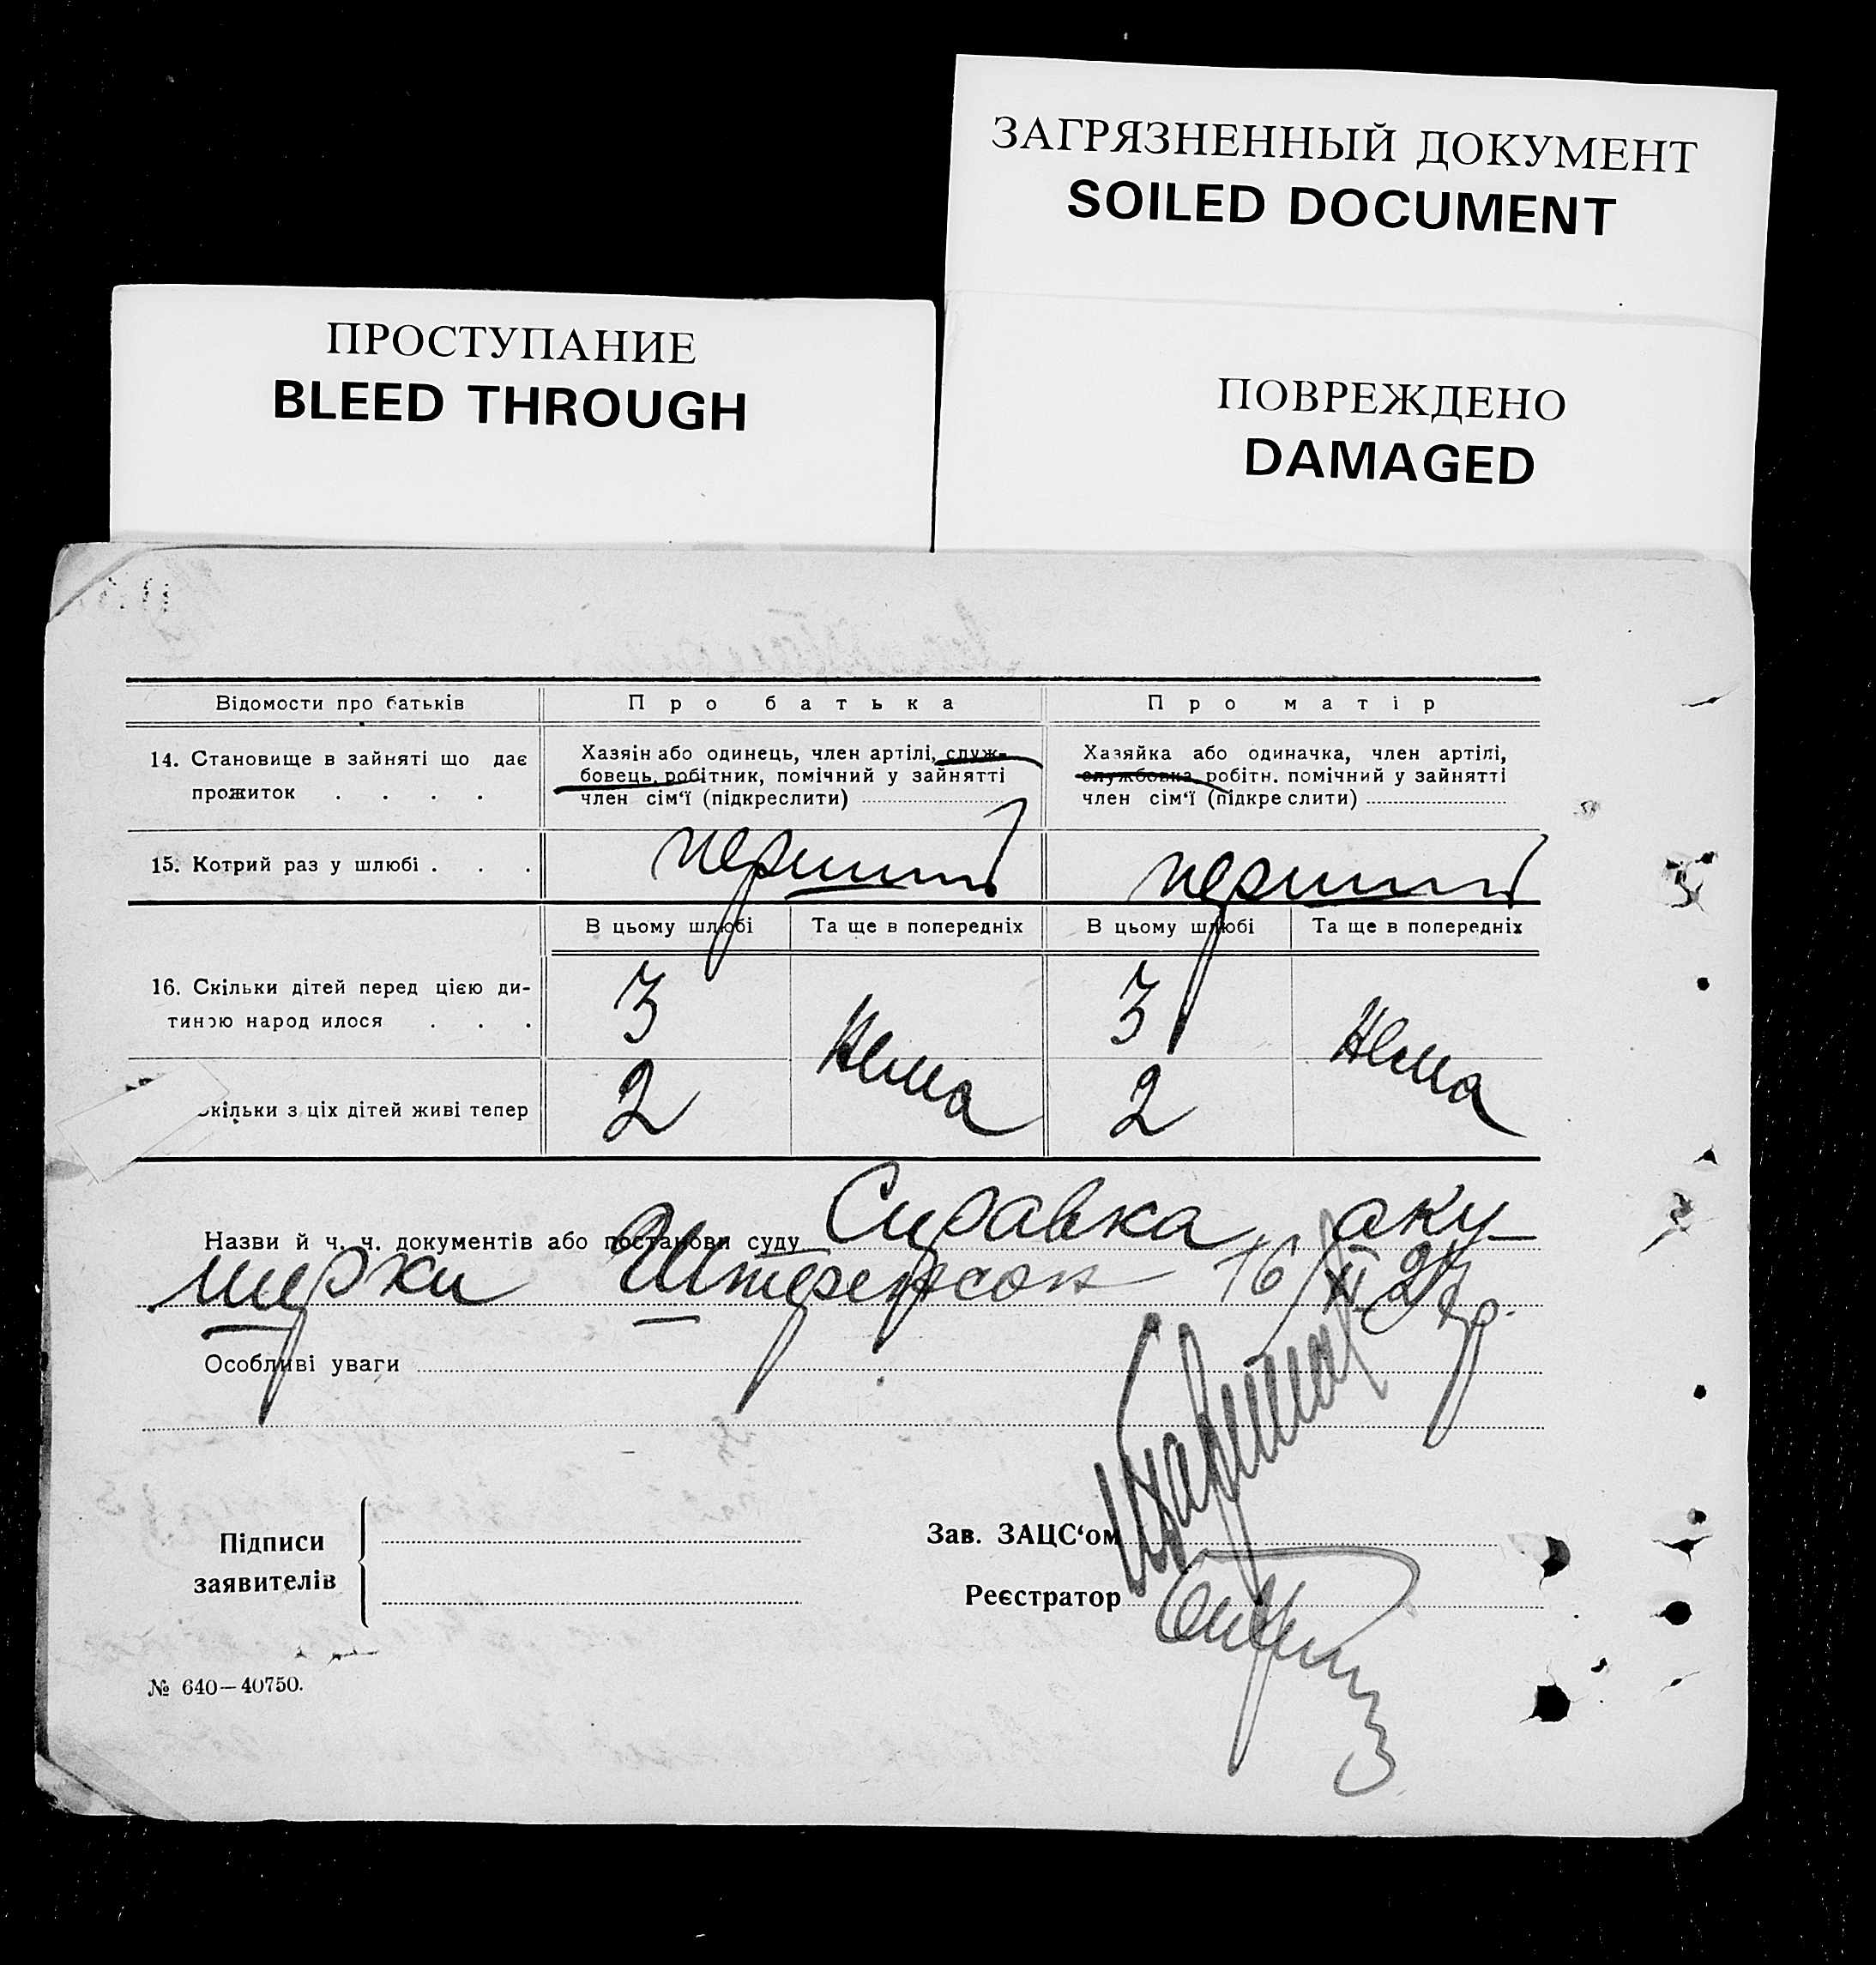 ЗАГРЯЗНЕННЫЙ ДОКУМЕНТ
SOILED DOCUMENT
ПРОСТУПАНИЕ
BLEED THROUGH
ПОВРЕЖДЕНО
DAMAGED
Відомости про батьків
Про батька
Про матір
14. Становище в зайняті що дає
прожиток . . . .
Хазяін або одинець, член артілі, служ-
бовець, робітник, помічний у зайнятті
член сім‘ї (підкреслити)
Хазяйка або одиначка, член артілі,
службовка, робітн. помічний у зайнятті
член сім‘ї (підкре слити)
15. Котрий раз у шлюбі . . .
перший
перший
В цьому шлюбі
Та ще в попередніх
В цьому шлюбі
Та ще в попередніх
16. Скільки дітей перед цією ди-
тиною народ илося . . .
3
Нема
3
Нема
кільки з ціх дітей живі тепер
2
2
Назви й ч. ч. документів або постанови суду Справка аку-
шерки 16/
Особливі уваги
Підписи
заявителів
Зав. ЗАЦС‘ом
Реєстратор
№ 640—40750.